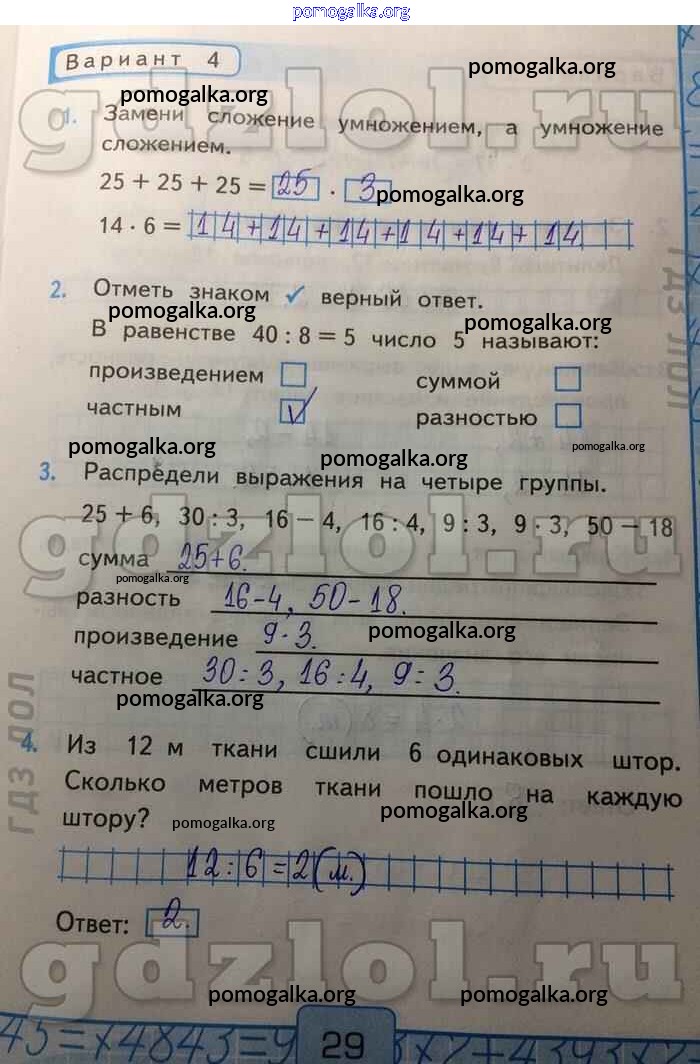 pomogalka.org
Вариант 4
pomogalka.org
pomogalka.org
gdzlol.ru
1. Замени сложение умножением, а умножение
сложением.
25 + 25 + 25 = 25 · 3
pomogalka.org
14 · 6 = 14+14+14+14+14+14
2. Отметь знаком ✓ верный ответ.
pomogalka.org pomogalka.org
В равенстве 40 : 8 = 5 число 5 называют:
произведением ☐ суммой ☐
частным ☑ разностью ☐
pomogalka.org pomogalka.org pomogalka.org
3. Распредели выражения на четыре группы.
25 + 6, 30 : 3, 16 − 4, 16 : 4, 9 : 3, 9 · 3, 50 − 18
gdzlol.ru
сумма 25+6.
pomogalka.org
разность 16-4, 50-18.
произведение 9·3.
pomogalka.org
частное 30:3, 16:4, 9:3.
pomogalka.org
ГДЗ ЛОЛ
ГДЗ ЛОЛ
4. Из 12 м ткани сшили 6 одинаковых штор.
Сколько метров ткани пошло на каждую
штору?
pomogalka.org pomogalka.org
12:6=2(м.)
Ответ: 2.
gdzlol.ru
pomogalka.org pomogalka.org
29